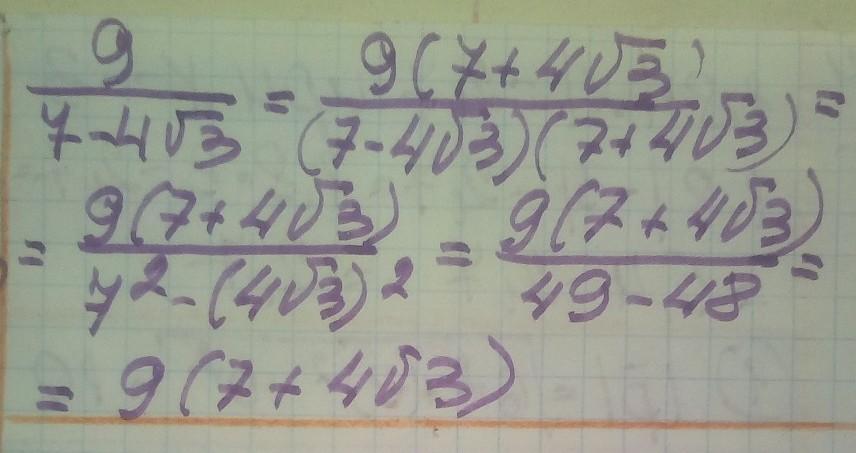 9/(7-4√3) = 9(7+4√3)/((7-4√3)(7+4√3)) =
= 9(7+4√3)/(7²-(4√3)²) = 9(7+4√3)/(49-48) =
= 9(7+4√3)